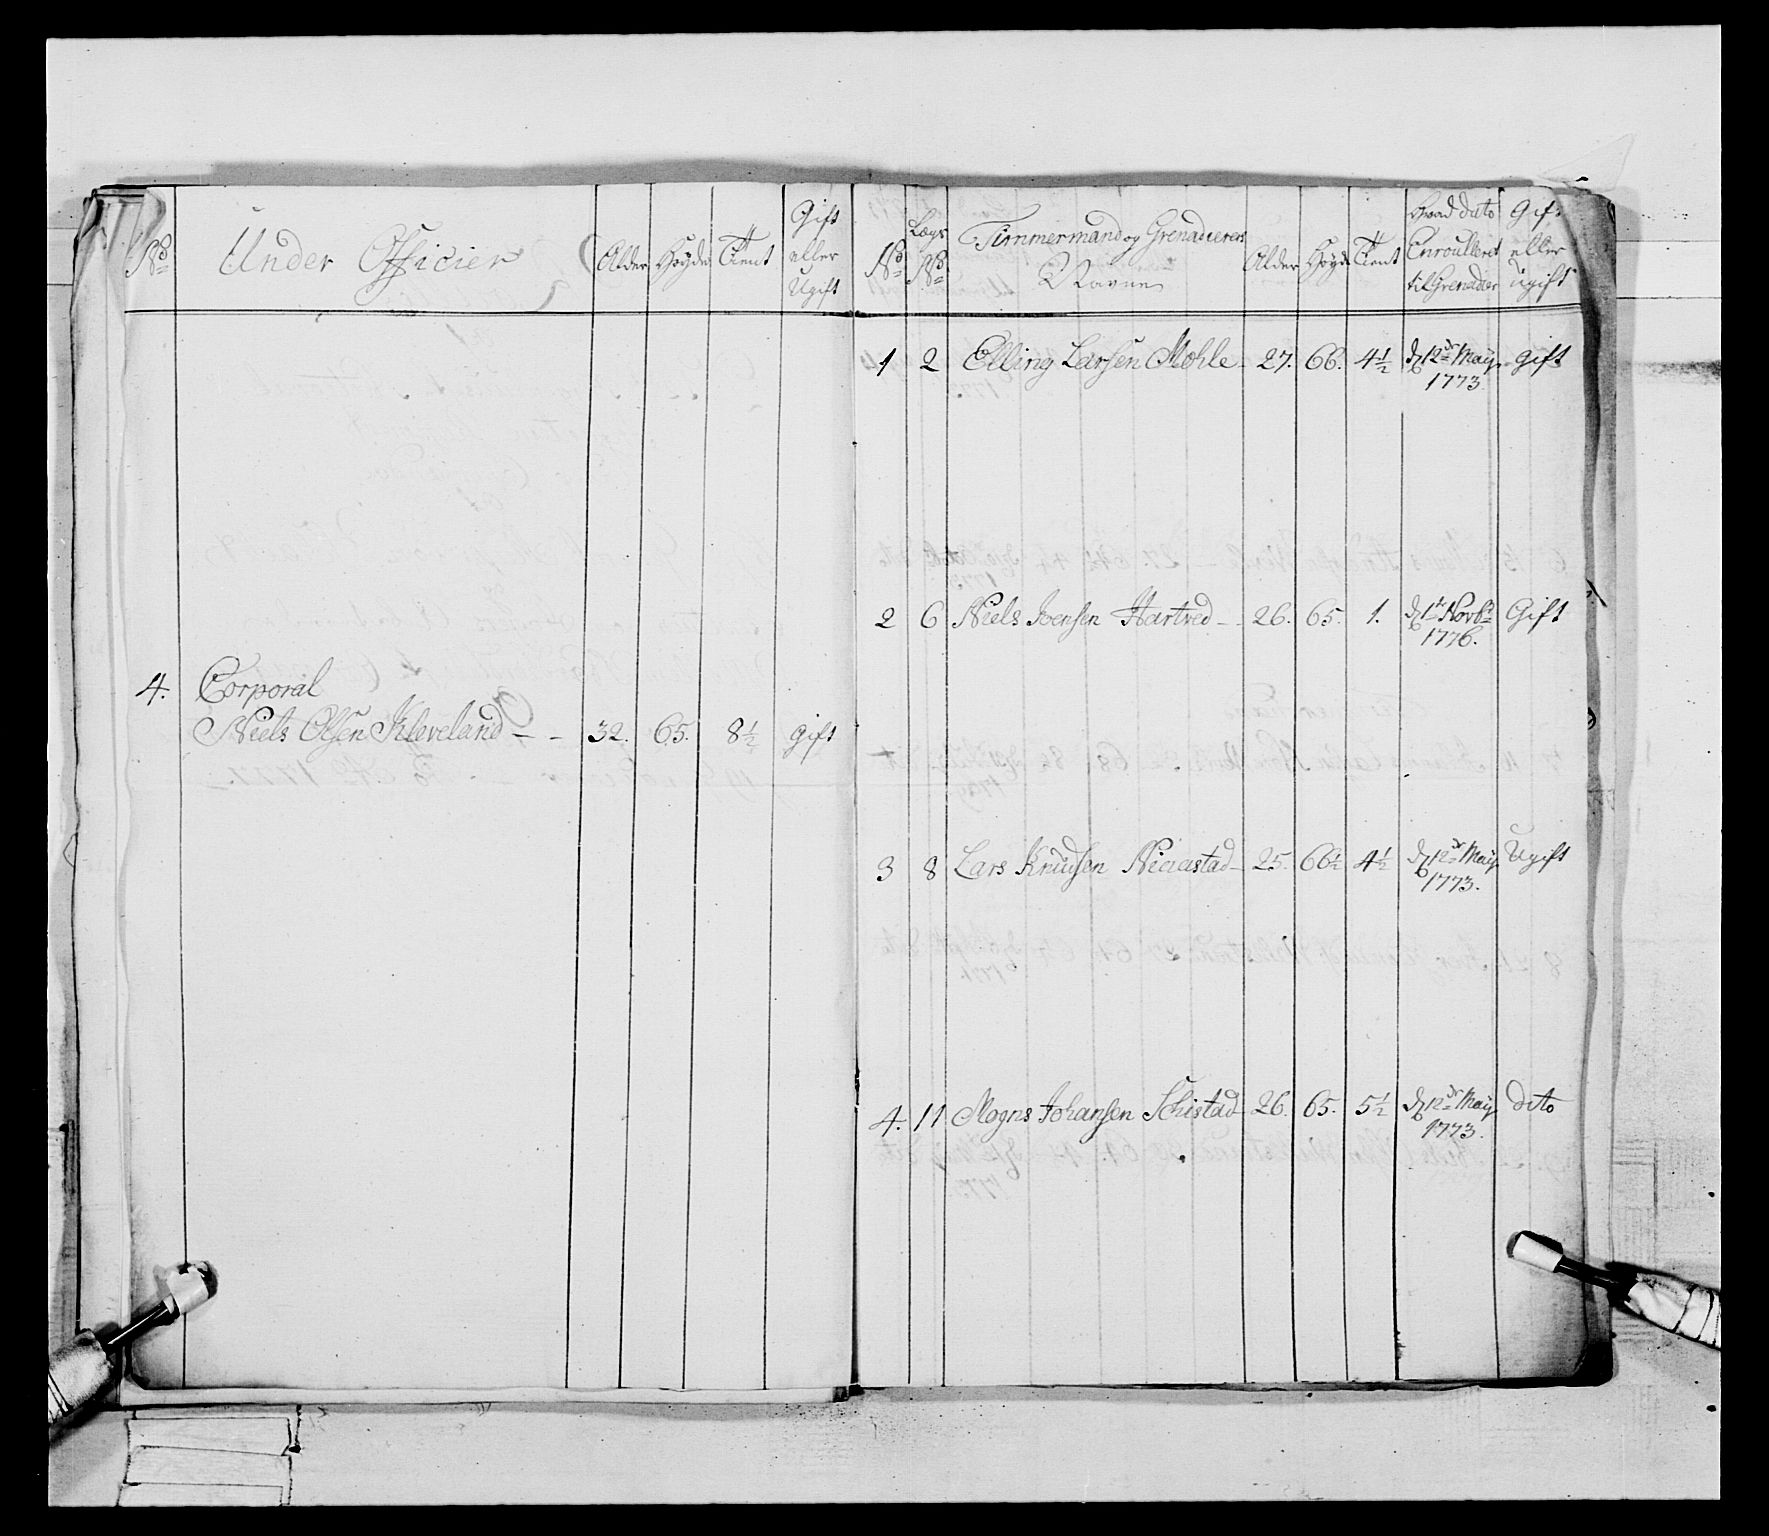 No
Under Officier
Alder
Høyde
Tient
Gift
eller
Ugift
4.
Corporal
Niels Olsen Kleveland - - 32. 65. 8½ gift
No
Lægs
No
Timmermand og Grenadierer
Navne
Alder
Høyde
Tient
Hvad dato
Enroulleret
til Grenadier
Gift
eller
Ugift
1 2 Elling Larsen Mohle - 27. 66. 4½ d 12te May gift
1773.
2 6 Niels Ivensen Hartved - - 26. 65. 1. d 1te Novbr Gift
1776.
3 8 Lars Knudsen - 25. 66½ 4½ d 12te May Ugift
1773.
4. 11 Mogns Johansen Schistad 26. 65. 5½ d 12te May dito
1773.